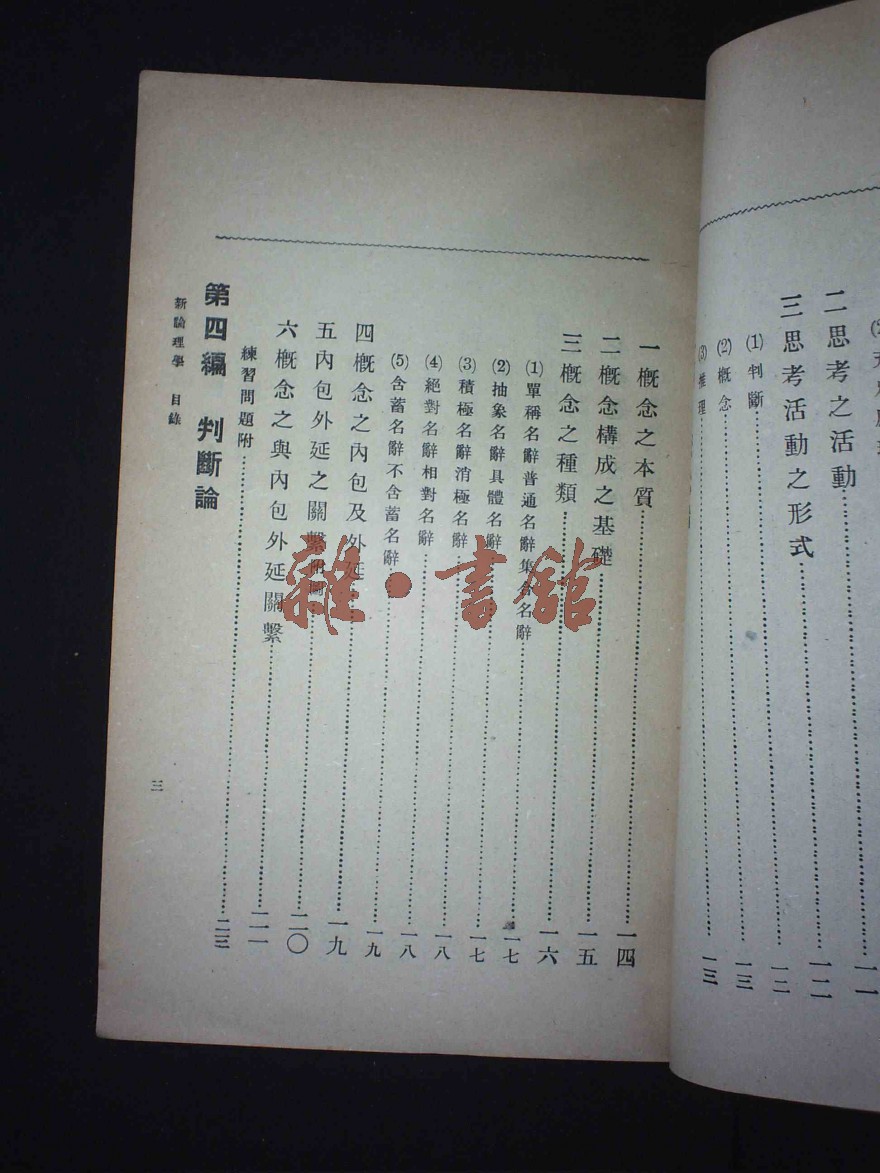 二思考之活動……一一
三思考活動之形式……一二
⑴判斷……一二
⑵概念……一三
⑶推理……一三
一概念之本質……一四
二概念構成之基礎……一五
三概念之種類……一六
⑴單稱名辭普通名辭集合名辭
⑵抽象名辭具體名辭……一七
⑶積極名辭消極名辭……一七
⑷絕對名辭相對名辭……一八
⑸含蓄名辭不含蓄名辭……一八
四概念之內包及外延……一九
五內包外延之關繫……一九
六概念之與內包外延關繫……二〇
練習問題附……二一
第四編 判斷論……二三
新論理學 目錄
三
雜·書館